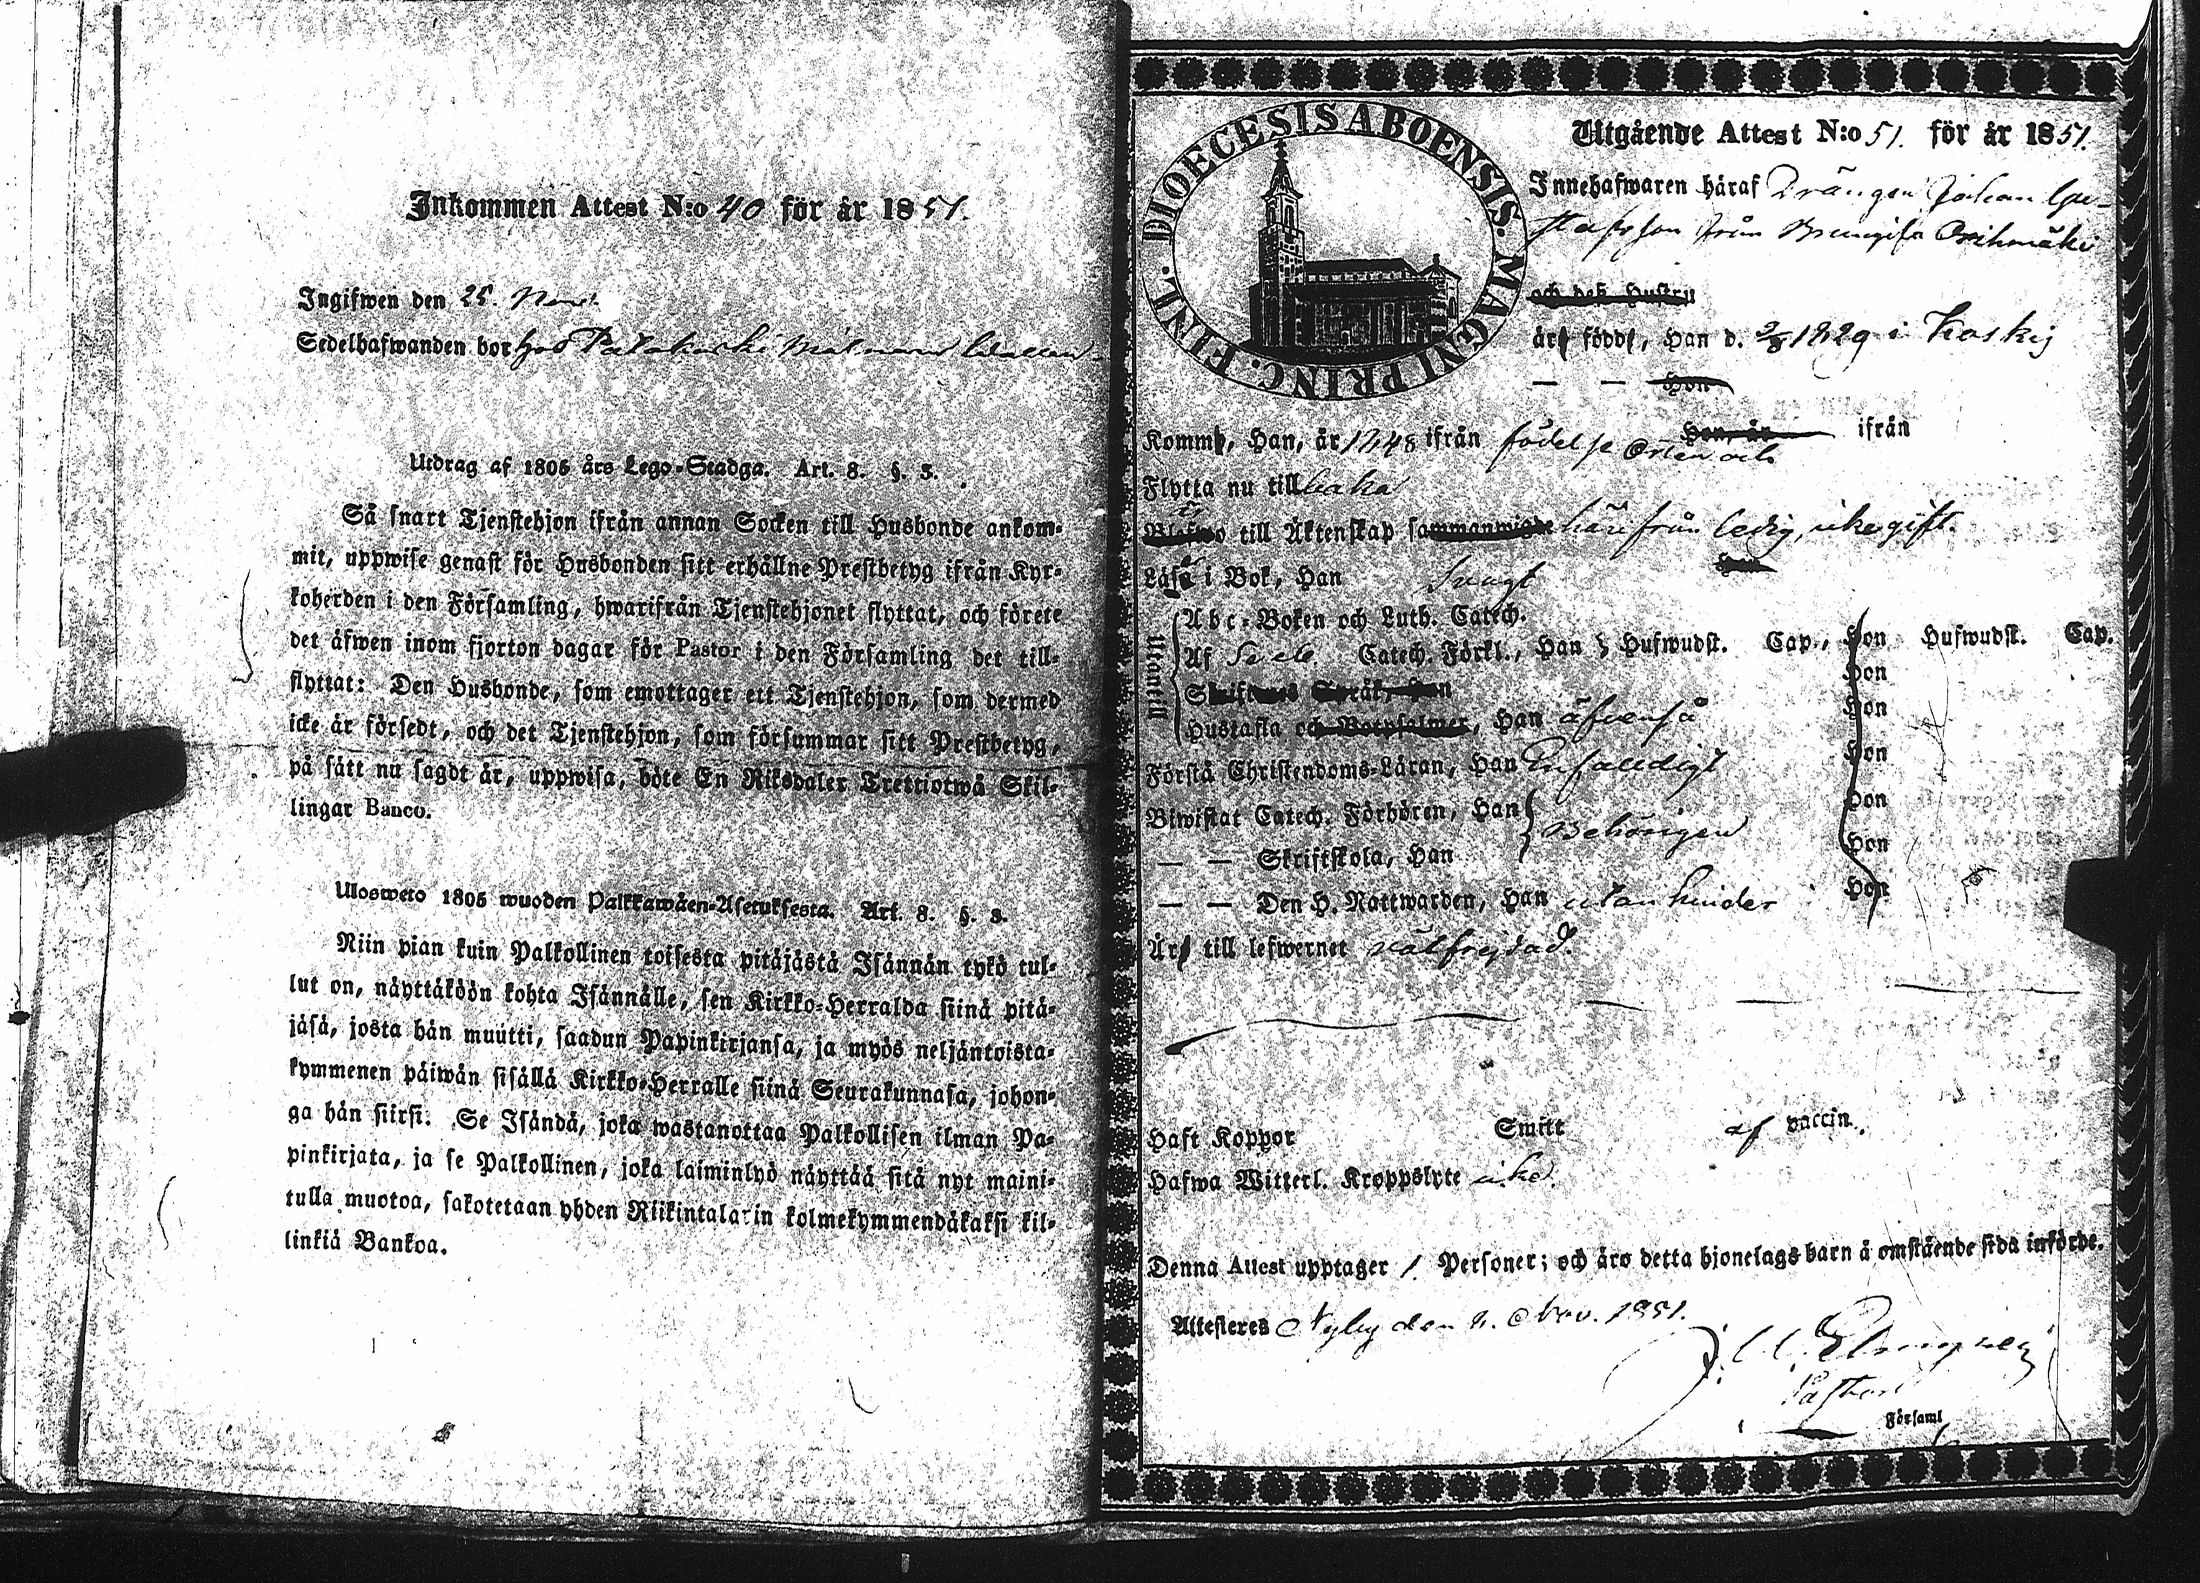 Inkommen Attest N:o 40 för år 1851.
Ingifwen den 25. Nov.
Sedelhafwanden bor hos
Utdrag af 1805 års Lego-Stadga. Art. 8. §. 3.
Så snart Tjenstehjon ifrån annan Socken till Husbonde ankom-
mit, uppwise genast för Husbonden sitt erhållne Prestbetyg ifrån Kyr-
koherden i den Församling, hwarifrån Tjenstehjonet flyttat, och förete
det äfwen inom fjorton dagar för Pastor i den Församling det till-
flyttat: Den Husbonde, som emottager ett Tjenstehjon, som dermed
icke är försedt, och det Tjenstehjon, som försummar sitt Prestbetyg,
på sätt nu sagdt är, uppwisa, böte En Riksdaler Trettiotwå Skil-
lingar Banco.
Ulosweto 1805 wuoden Palkkawäen-Asetuksesta. Art. 8. §. 3.
Niin pian kuin Palkollinen toisesta pitäjästä Isännän tykö tul-
lut on, näyttäköön kohta Isännälle, sen Kirkko-Herralda siinä pitä-
jäsä, josta hän muutti, saadun Papinkirjansa, ja myös neljäntoista-
kymmenen päiwän sisällä Kirkko-Herralle siinä Seurakunnasa, johon-
ga hän siirsi. Se Isändä, joka wastanottaa Palkollisen ilman Pa-
pinkirjata, ja se Palkollinen, joka laiminlyö näyttää sitä nyt maini-
tulla muotoa, sakotetaan yhden Riikintalarin kolmekymmendäkaksi kil-
linkiä Bankoa.
DIOECESIS ABOENSIS. MAGNI PRINC. FINL.
Utgående Attest N:o 51. för år 1851.
Innehafwaren häraf Drängen Johan Gu-
stafsson från
och deß Hustru
äro födde, Han d. 2/8 1829 i Koskis
— — Hon
Kommo, Han, år 1848 ifrån födelse Orten och Hon, år ifrån
Flytta nu tillbaka
till Äktenskap sammanwigde härifrån ledig, icke gift.
Läsa i Bok, Han Svagt Hon
Utantill
Abc-Boken och Luth. Catech.
Af Catech. Förkl., Han Hufwudst. Cap., Hon Hufwudst. Cap.
Skriftenes Språk, Han Hon
Hustafla och Botpsalmer, Han äfvenså Hon
Förstå Christendoms-Läran, Han Enfaldigt Hon
Biwistat Catech. Förhören, Han Behörigen Hon
— — Skriftskola, Han Hon
— — Den H. Nattwarden, Han utan hinder Hon
Äro till lefwernet välfrejdad.
Haft Koppor Smitt af vaccin.
Hafwa Witterl. Kroppslyte icke.
Denna Attest upptager 1. Personer; och äro detta hjonelags barn å omstående sida införde.
Attesteres Nyby den 11. Nov. 1851.
Pastor
Församl